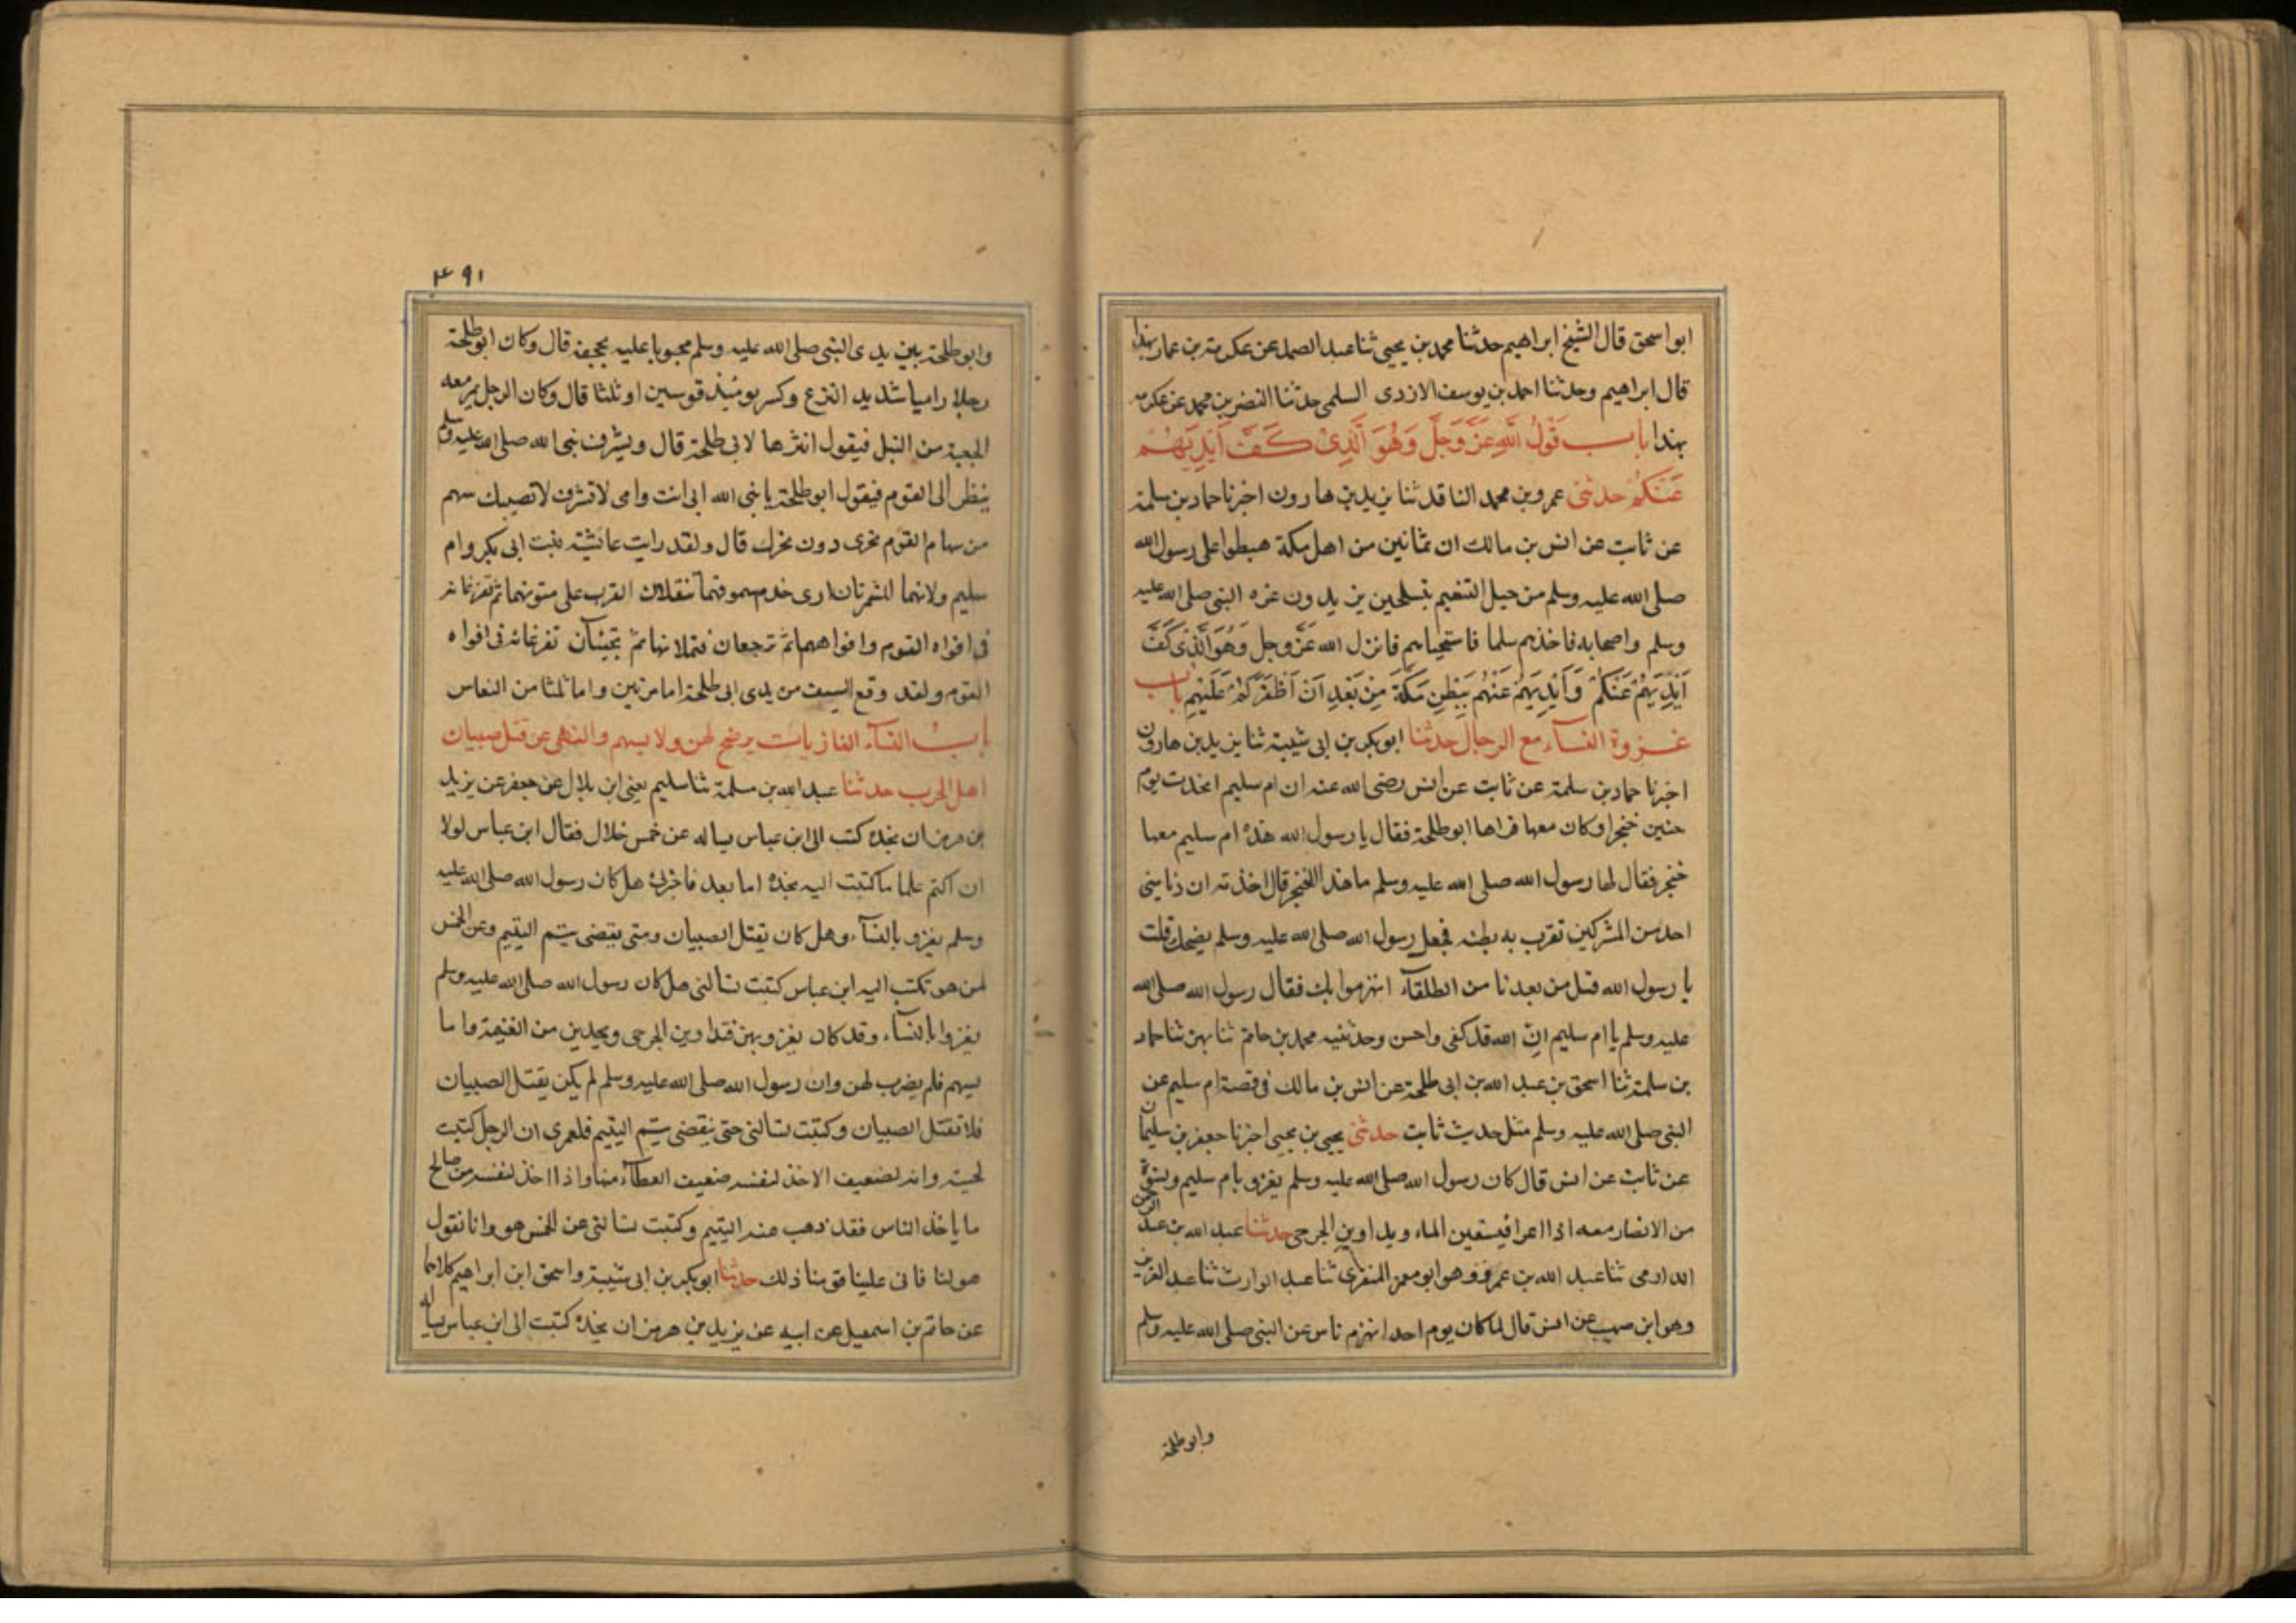 ابو اسحق قال الشيخ ابراهيم حدثنا محمد بن يحيى ثنا عبد الصمد عن عكرمة بن عمار بهذا
قال ابراهيم وحدثنا احمد بن يوسف الازدى السلمى حدثنا النضر بن محمد عن عكرمه
بهذا باب قَولُ اللهِ عَزَّ وَجَلَّ وَهُوَ الَّذِىْ كَفَّ اَيْدِيَهُمْ
عَنْكُمْ حدثنى عمرو بن محمد الناقد ثنا يزيد بن هارون اخبرنا حماد بن سلمة
عن ثابت عن انس بن مالك ان ثمانين من اهل مكة هبطوا على رسول الله
صلى الله عليه وسلم من جبل التنعيم متسلحين يريدون غره النبى صلى الله عليه
وسلم واصحابه فاخذهم سلما فاستحياهم فانزل الله عَزَّ وجل وَهُوَ الَّذِىْ كَفَّ
اَيْدِيَهُمْ عَنْكُمْ وَاَيْدِيَكُمْ عَنْهُمْ بِبَطْنِ مَكَّةَ مِنْ بَعْدِ اَنْ اَظْفَرَكُمْ عَلَيْهِمْ باب
غزوة النسآء مع الرجال حدثنا ابو بكر بن ابى شيبة ثنا يزيد بن هارون
اخبرنا حماد بن سلمة عن ثابت عن انس رضى الله عنه ان ام سليم اتخذت يوم
حنين خنجرا وكان معها فراها ابو طلحة فقال يا رسول الله هذه ام سليم معها
خنجر فقال لها رسول الله صلى الله عليه وسلم ما هذا الخنجر قال اخذته ان دنا منى
احد من المشركين بقرت به بطنه فجعل رسول الله صلى الله عليه وسلم يضحك قلت
يا رسول الله قتل من بعدنا من الطلقآء انهزموا بك فقال رسول الله صلى الله
عليه وسلم يا ام سليم ان الله قد كفى واحسن وحدثنيه محمد بن حاتم ثنا بهز ثنا حماد
بن سلمة ثنا اسحق بن عبد الله بن ابى طلحة عن انس بن مالك فى قصة ام سليم عن
النبى صلى الله عليه وسلم مثل حديث ثابت حدثنى يحيى بن يحيى اخبرنا جعفر بن سليمان
عن ثابت عن انس قال كان رسول الله صلى الله عليه وسلم يغزو بام سليم ونسوة
من الانصار معه اذا اعزا فيسقين الماء ويداوين الجرحى حدثنا عبد الله بن عبد الرحمن
الدارمى ثنا عبد الله بن عمرو وهو ابو معمر المنقرى ثنا عبد الوارث ثنا عبد العزيز
وهو ابن صهيب عن انس قال لما كان يوم احد انهزم ناس عن النبى صلى الله عليه وسلم
وابو طلحة
٤٩١
وابو طلحة بين يدى النبى صلى الله عليه وسلم مجوبا عليه بحجفة قال وكان ابو طلحة
رجلا راميا شديد النزع وكسر يومئذ قوسين او ثلثا قال وكان الرجل يمر معه
الجعبة من النبل فيقول انثرها لابى طلحة قال ويشرف نبى الله صلى الله عليه وسلم
ينظر الى القوم فيقول ابو طلحة يا نبى الله ابى انت وامى لا تشرف لا تصيبك سهم
من سهام القوم نحرى دون نحرك قال ولقد رايت عائشة بنت ابى بكر وام
سليم ولانهما لمشمرتان ارى خدم سوقهما تنقلان القرب على متونهما ثم تفرغانه
فى افواه القوم وافواههم ثم ترجعان فتملانها ثم تجيئان تفرغانه فى افواه
القوم ولقد وقع السيف من يدى ابى طلحة اما مرتين واما ثلثا من النعاس
باب النسآء الغازيات يرضخ لهن ولا يسهم والنهى عن قتل صبيان
اهل الحرب حدثنا عبد الله بن مسلمة ثنا سليم يعنى ابن بلال عن جعفر عن يزيد
بن هرمز ان نجدة كتب الى ابن عباس يساله عن خمس خلال فقال ابن عباس لولا
ان اكتم علما ما كتبت اليه نجدة اما بعد فاخبرنى هل كان رسول الله صلى الله عليه
وسلم يغزو بالنسآء وهل كان يقتل الصبيان ومتى ينقضى يتم اليتيم وعن الخمس
لمن هو تكتب اليه ابن عباس كتبت تسالنى هل كان رسول الله صلى الله عليه وسلم
يغزوا بالنسآء وقد كان يغزو بهن فيداوين الجرحى ويحذين من الغنيمة واما
بسهم فلم يضرب لهن وان رسول الله صلى الله عليه وسلم لم يكن يقتل الصبيان
فلا تقتل الصبيان وكتبت تسالنى حتى ينقضى يتم اليتيم فلعمرى ان الرجل كتبت
لحيته وانه لضعيف الاخذ لنفسه ضعيف العطآء منها واذا اخذ لنفسه من صالح
ما ياخذ الناس فقد ذهب عنه اليتيم وكتبت تسالنى عن الخمس هو وانا نقول
هو لنا فابى علينا قومنا ذلك حدثنا ابو بكر بن ابى شيبة واسحق ابن ابراهيم كلاهما
عن حاتم بن اسمعيل عن ابيه عن يزيد بن هرمز ان نجدة كتبت الى ابن عباس يساله